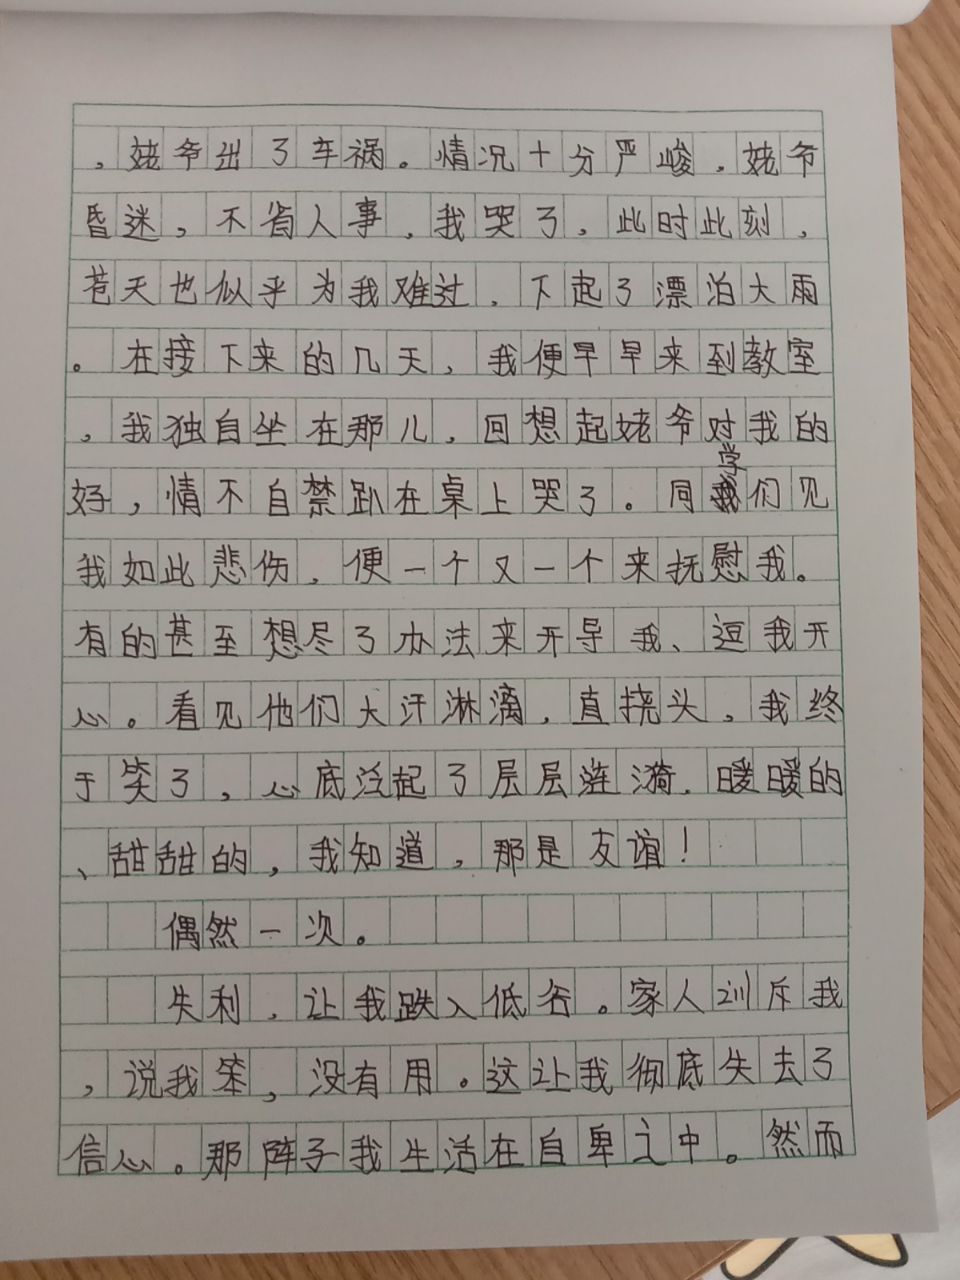 ，姥爷出了车祸。情况十分严峻，姥爷
昏迷，不省人事，我哭了，此时此刻，
苍天也似乎为我难过，下起了漂泊大雨
。在接下来的几天，我便早早来到教室
，我独自坐在那儿，回想起姥爷对我的
好，情不自禁趴在桌上哭了。同学们见
我如此悲伤，便一个又一个来抚慰我。
有的甚至想尽了办法来开导我、逗我开
心。看见他们大汗淋漓，直挠头，我终
于笑了，心底泛起了层层涟漪，暖暖的
、甜甜的，我知道，那是友谊！
偶然一次。
失利，让我跌入低谷。家人训斥我
，说我笨，没有用。这让我彻底失去了
信心。那阵子我生活在自卑之中。然而